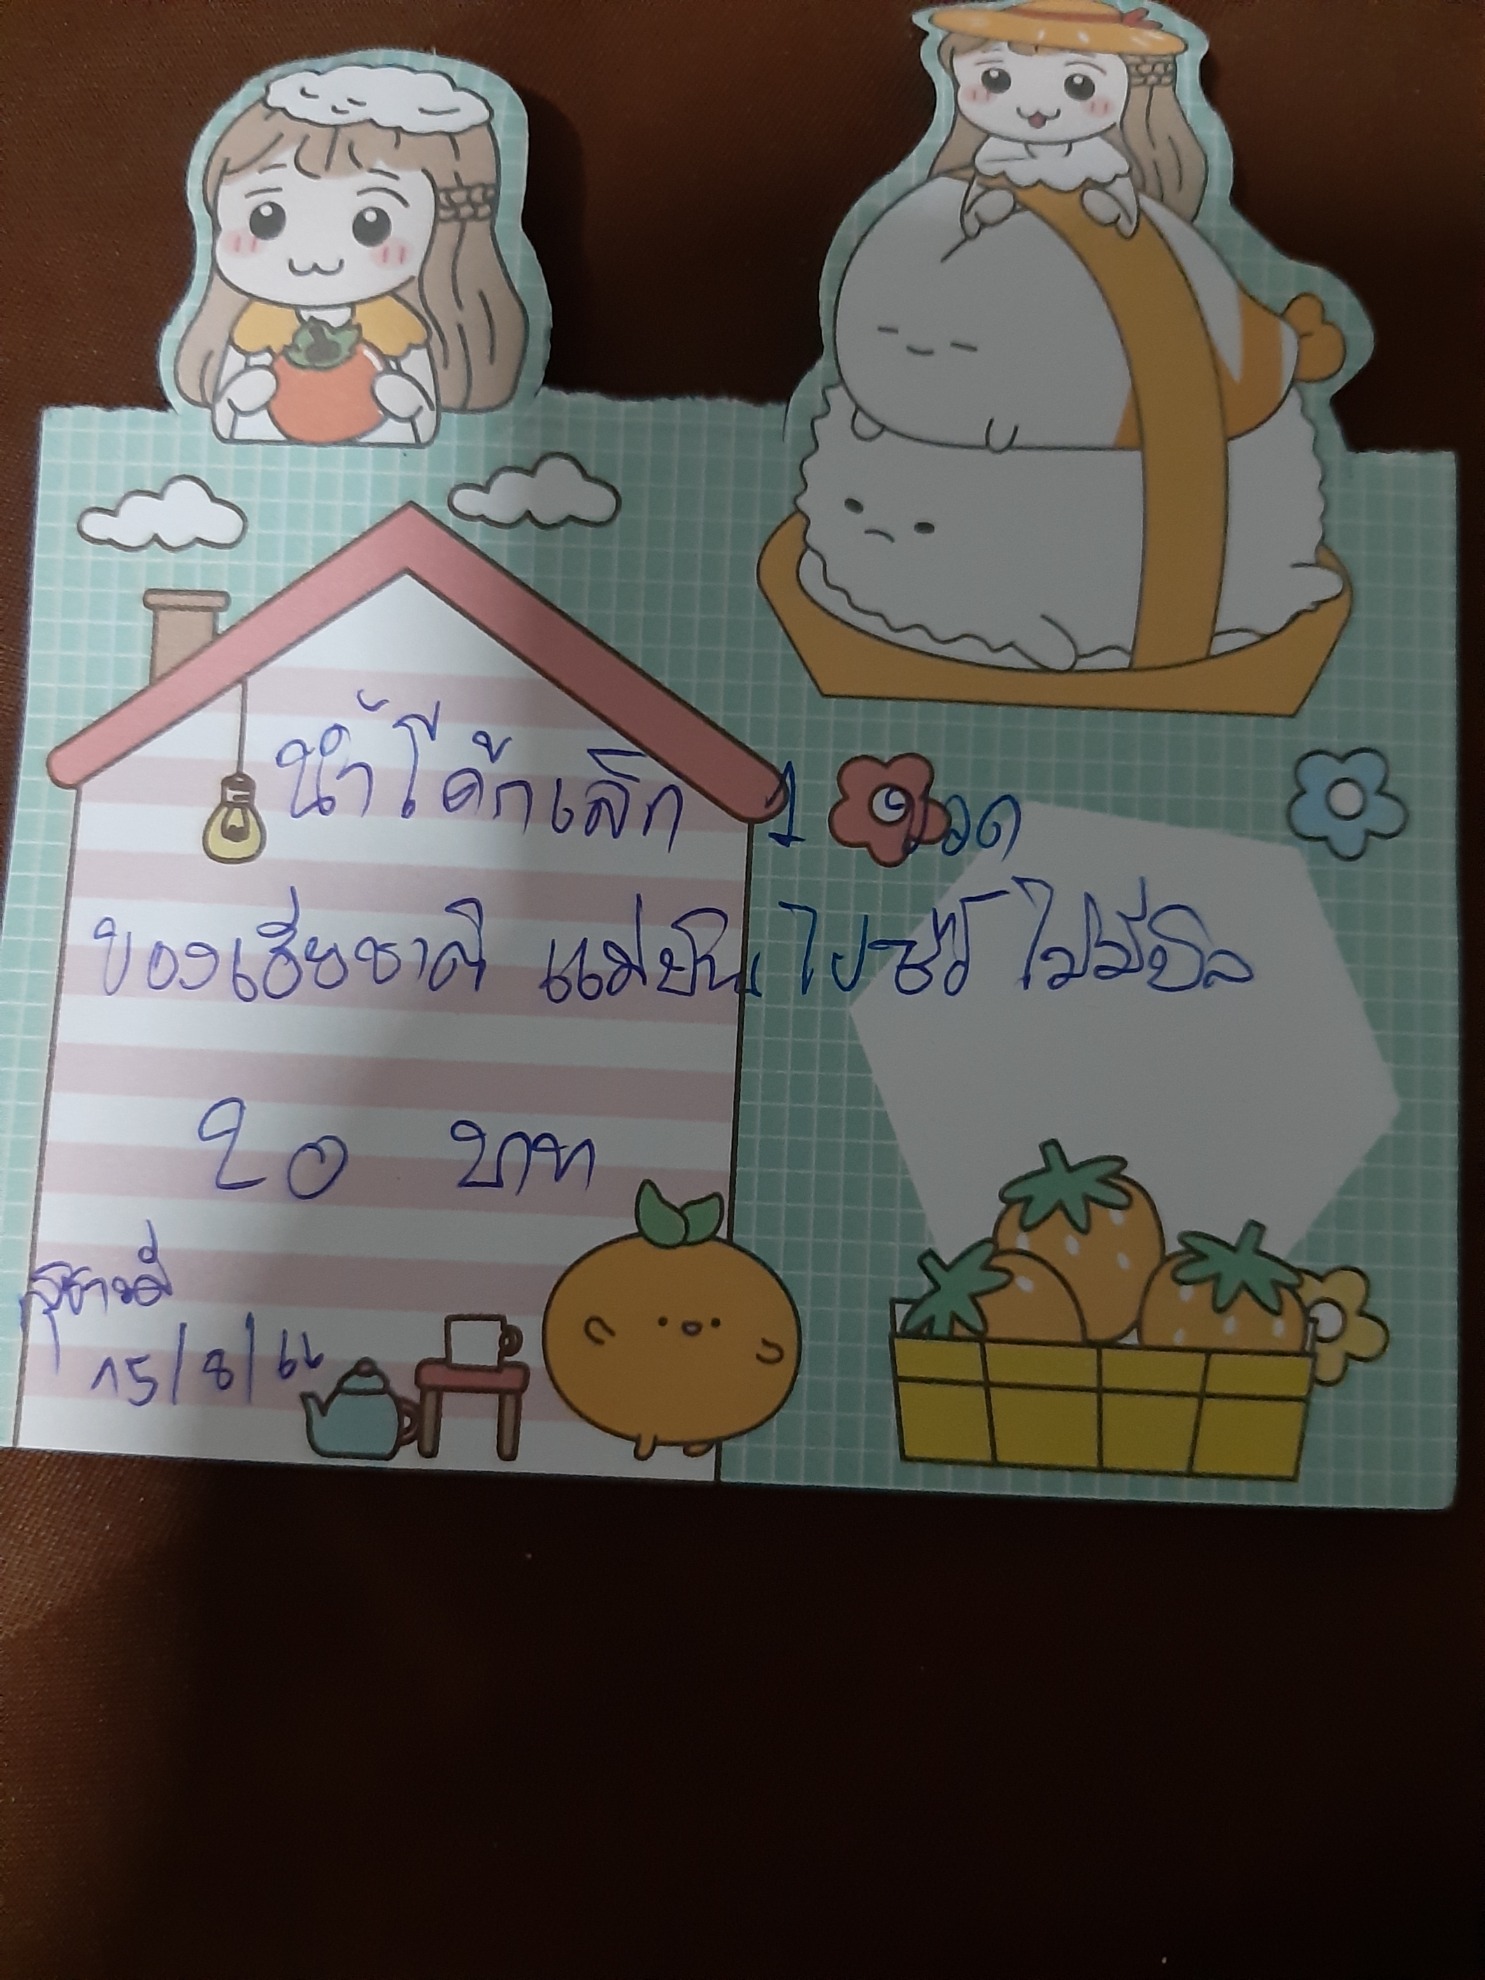 น้ำโค้กเล็ก 1 ขวด
ของเฮียชาติ แม่ยืนไปซื้อ ไม่มีบิล
20 บาท
สุชาวดี
15/8/66